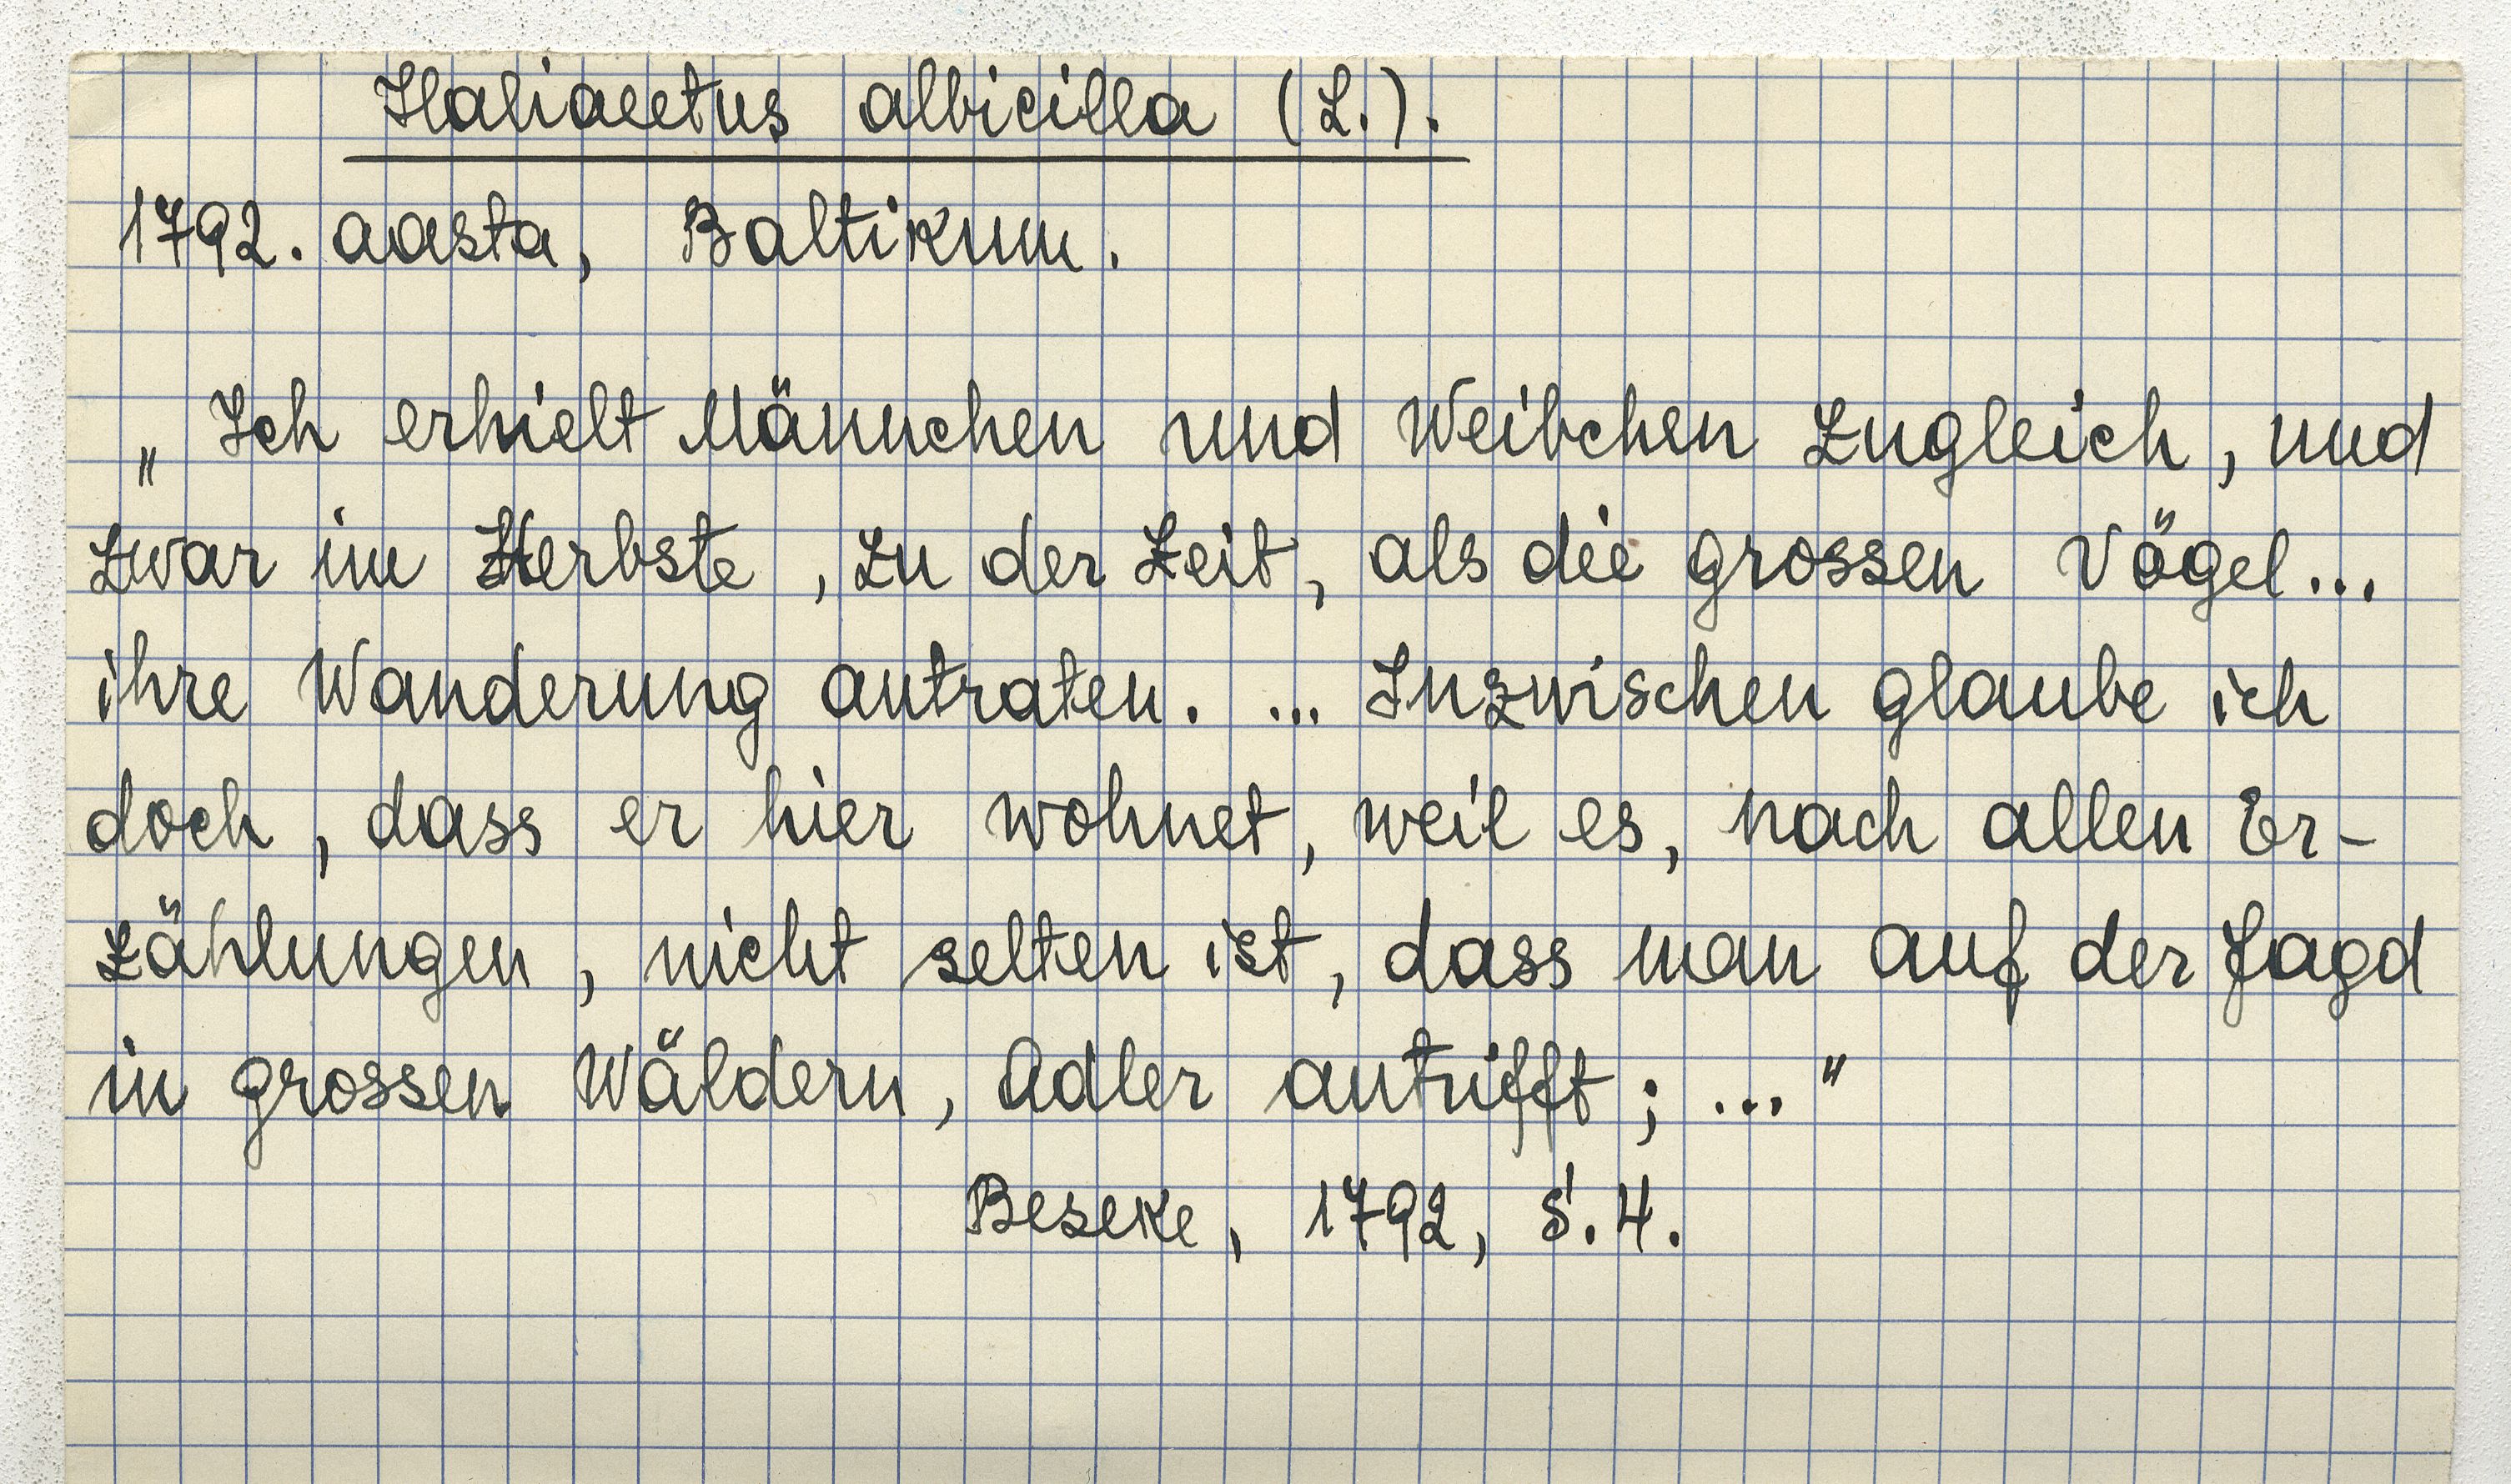 Haliaeetus albicilla (L.).
1792. aasta, Baltikum.
„Ich erhielt Männchen und Weibchen zugleich, und
zwar im Herbste, zu der Zeit, als die grossen Vögel...
ihre Wanderung antraten. ... Inzwischen glaube ich
doch, dass er hier wohnet, weil es, nach allen Er-
zählungen, nicht selten ist, dass man auf der Jagd
in grossen Wäldern, Adler antrifft; ..."
Beseke, 1792, S. 4.